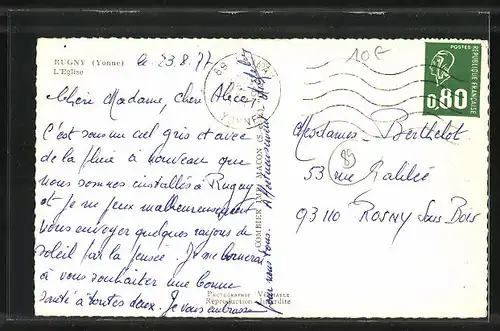 RUGNY (Yonne)
L'Eglise
le 23.8.77
Chère Madame, chère Alice,
C'est sous un ciel gris et avec
de la pluie à nouveau que
nous sommes installés à Rugny
et je ne peux malheureusement
vous envoyer quelques rayons de
soleil par la pensée. Je me bornerai
à vous souhaiter une bonne
santé à toutes deux. Je vous embrasse
pour nous tous. Affectueusement
COMBIER IMP. MACON
PHOTOGRAPHIE VÉRITABLE
Reproduction Interdite
10 F
POSTES
RÉPUBLIQUE FRANÇAISE
0,80
89
YONNE
95
Mesdames Berthelot
53 rue Galilée
93110 ROSNY Sous Bois